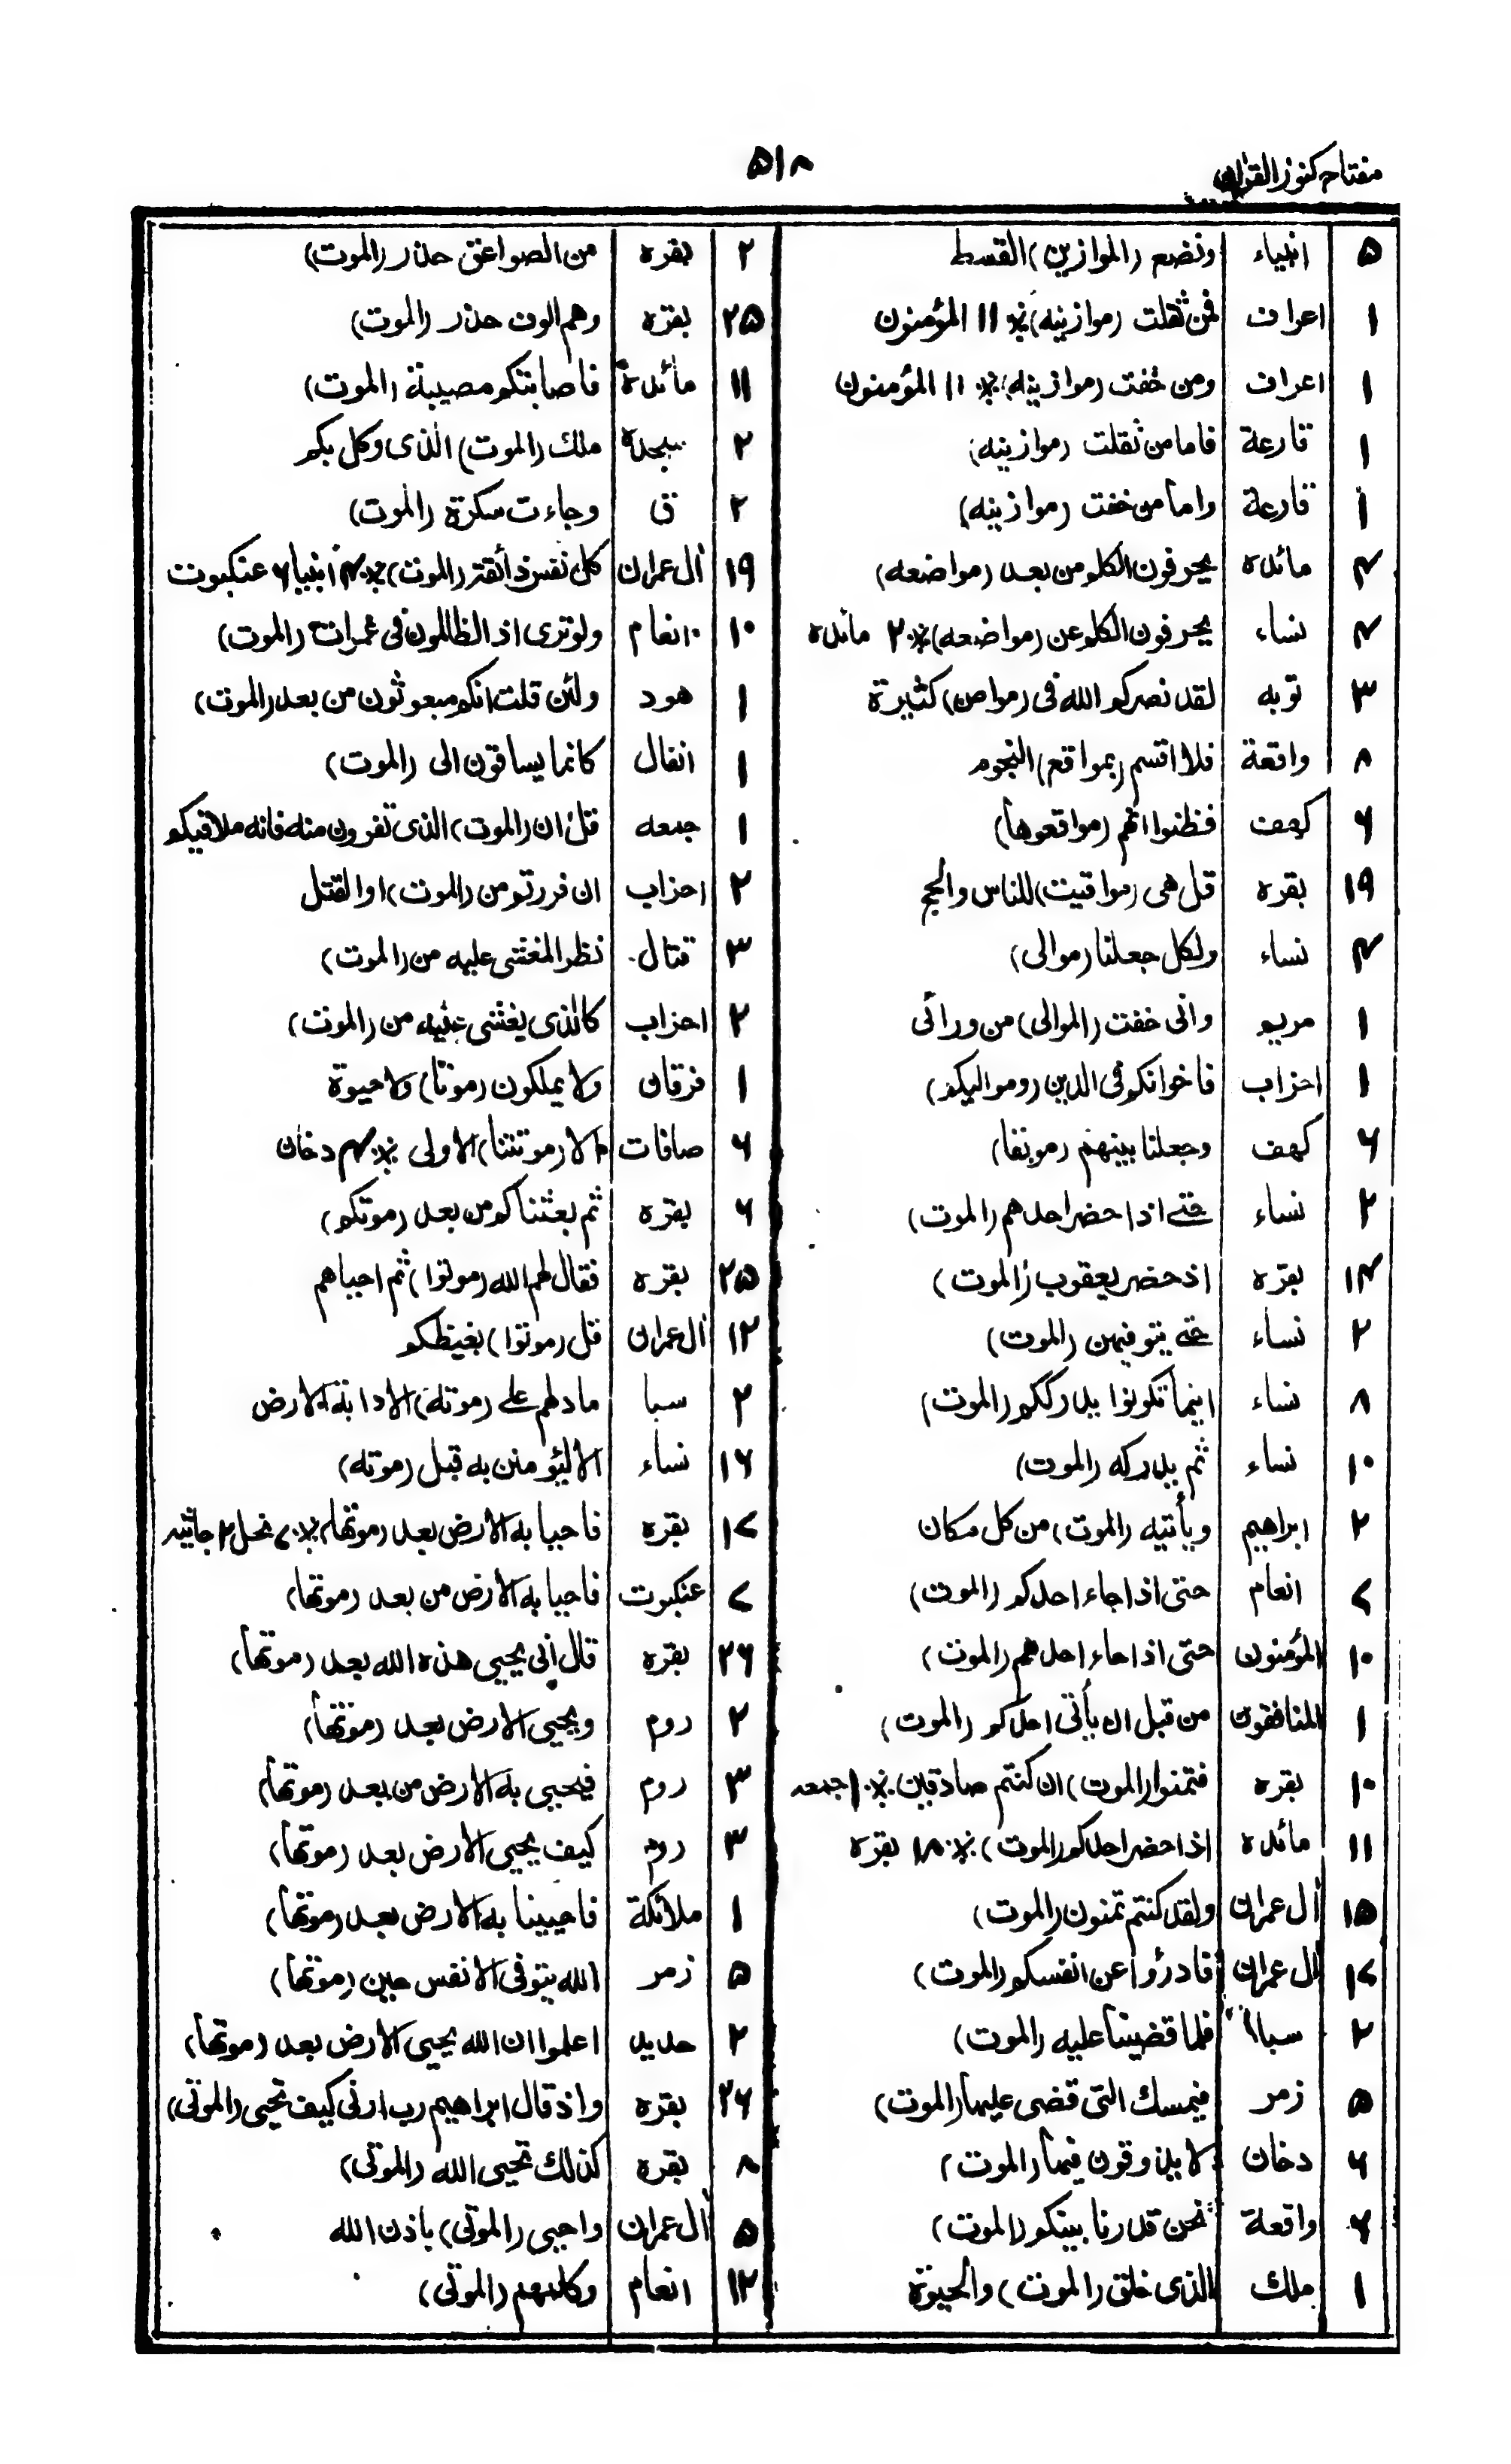 مفتاح كنوز القران
۵۱۸
۵ انبیاء ونضع (الموازين) القسط
۱ اعراف فمن ثقلت (موازينه) ٪ ۱۱ المؤمنون
۱ اعراف ومن خفت (موازينه) ٪ ۱۱ المؤمنون
۱ قارعة فاما من ثقلت (موازينه)
۱ قارعة واما من خفت (موازينه)
۴ مائده يحرفون الكلم من بعد (مواضعه)
۴ نساء يحرفون الكلم عن (مواضعه) ٪ ۲ مائده
۳ توبه لقد نصركم الله فى (مواطن) كثيرة
۸ واقعة فلا اقسم (بمواقع) النجوم
۶ كهف فظنوا انهم (مواقعوها)
۱۹ بقره قل هى (مواقيت) للناس والحج
۴ نساء ولكل جعلنا (موالى)
۱ مريم وانى خفت (الموالى) من ورائى
۱ احزاب فاخوانكم فى الدين (ومواليكم)
۶ كهف وجعلنا بينهم (موبقا)
۲ نساء حتى اذا حضر احدهم (الموت)
۱۴ بقره اذ حضر يعقوب (الموت)
۲ نساء حتى يتوفهن (الموت)
۸ نساء اينما تكونوا يدرككم (الموت)
۱۰ نساء ثم يدركه (الموت)
۲ ابراهيم ويأتيه (الموت) من كل مكان
۷ انعام حتى اذا جاء احدكم (الموت)
۱۰ المؤمنون حتى اذا جاء احدهم (الموت)
۱ المنافقون من قبل ان يأتى احدكم (الموت)
۱۰ بقره فتمنوا (الموت) ان كنتم صادقين ٪ ۱ جمعه
۱۱ مائده اذا حضر احدكم (الموت) ٪ ۱۸ بقره
۱۵ أل عمران ولقد كنتم تمنون (الموت)
۱۷ أل عمران فادرؤا عن انفسكم (الموت)
۲ سبا فلما قضينا عليه (الموت)
۵ زمر فيمسك التى قضى عليها (الموت)
۶ دخان لا يذوقون فيها (الموت)
۲ واقعة نحن قدرنا بينكم (الموت)
۱ ملك الذى خلق (الموت) والحيوة
۲ بقره من الصواعق حذر (الموت)
۲۵ بقره وهم الوف حذر (الموت)
۱۱ مائدة فاصابتكم مصيبة (الموت)
۲ سجدة ملك (الموت) الذى وكل بكم
۲ ق وجاءت سكرة (الموت)
۱۹ أل عمران كل نفس ذائقة (الموت) ٪ ۳ انبيا ۶ عنكبوت
۱۰ انعام ولو ترى اذ الظالمون فى غمرات (الموت)
۱ هود ولئن قلت انكم مبعوثون من بعد (الموت)
۱ انفال كانما يساقون الى (الموت)
۱ جمعه قل ان (الموت) الذى تفرون منه فانه ملاقيكم
۲ احزاب ان فررتم من (الموت) او القتل
۳ قتال نظر المغشى عليه من (الموت)
۲ احزاب كالذى يغشى عليه من (الموت)
۱ فرقان ولا يملكون (موتا) ولا حيوة
۶ صافات الا (موتتنا) الاولى ٪ ۳ دخان
۶ بقره ثم بعثناكم من بعد (موتكم)
۲۵ بقره فقال لهم الله (موتوا) ثم احياهم
۱۲ أل عمران قل (موتوا) بغيظكم
۲ سبا ما دلهم على (موته) الا دابة الارض
۱۶ نساء الا ليؤمنن به قبل (موته)
۱۷ بقره فاحيا به الارض بعد (موتها) ٪ ۷ نحل ۲ جاثيه
۷ عنكبوت فاحيا به الارض من بعد (موتها)
۲۶ بقره قال انى يحيى هذه الله بعد (موتها)
۲ روم ويحيى الارض بعد (موتها)
۳ روم فيحيى به الارض من بعد (موتها)
۳ روم كيف يحيى الارض بعد (موتها)
۱ ملائكة فاحيينا به الارض بعد (موتها)
۵ زمر الله يتوفى الانفس حين (موتها)
۲ حديد اعلموا ان الله يحيى الارض بعد (موتها)
۲۶ بقره واذ قال ابراهيم رب ارنى كيف تحيى (الموتى)
۸ بقره كذلك تحيى الله (الموتى)
۵ أل عمران واحيى (الموتى) باذن الله
۱۲ انعام وكلمهم (الموتى)